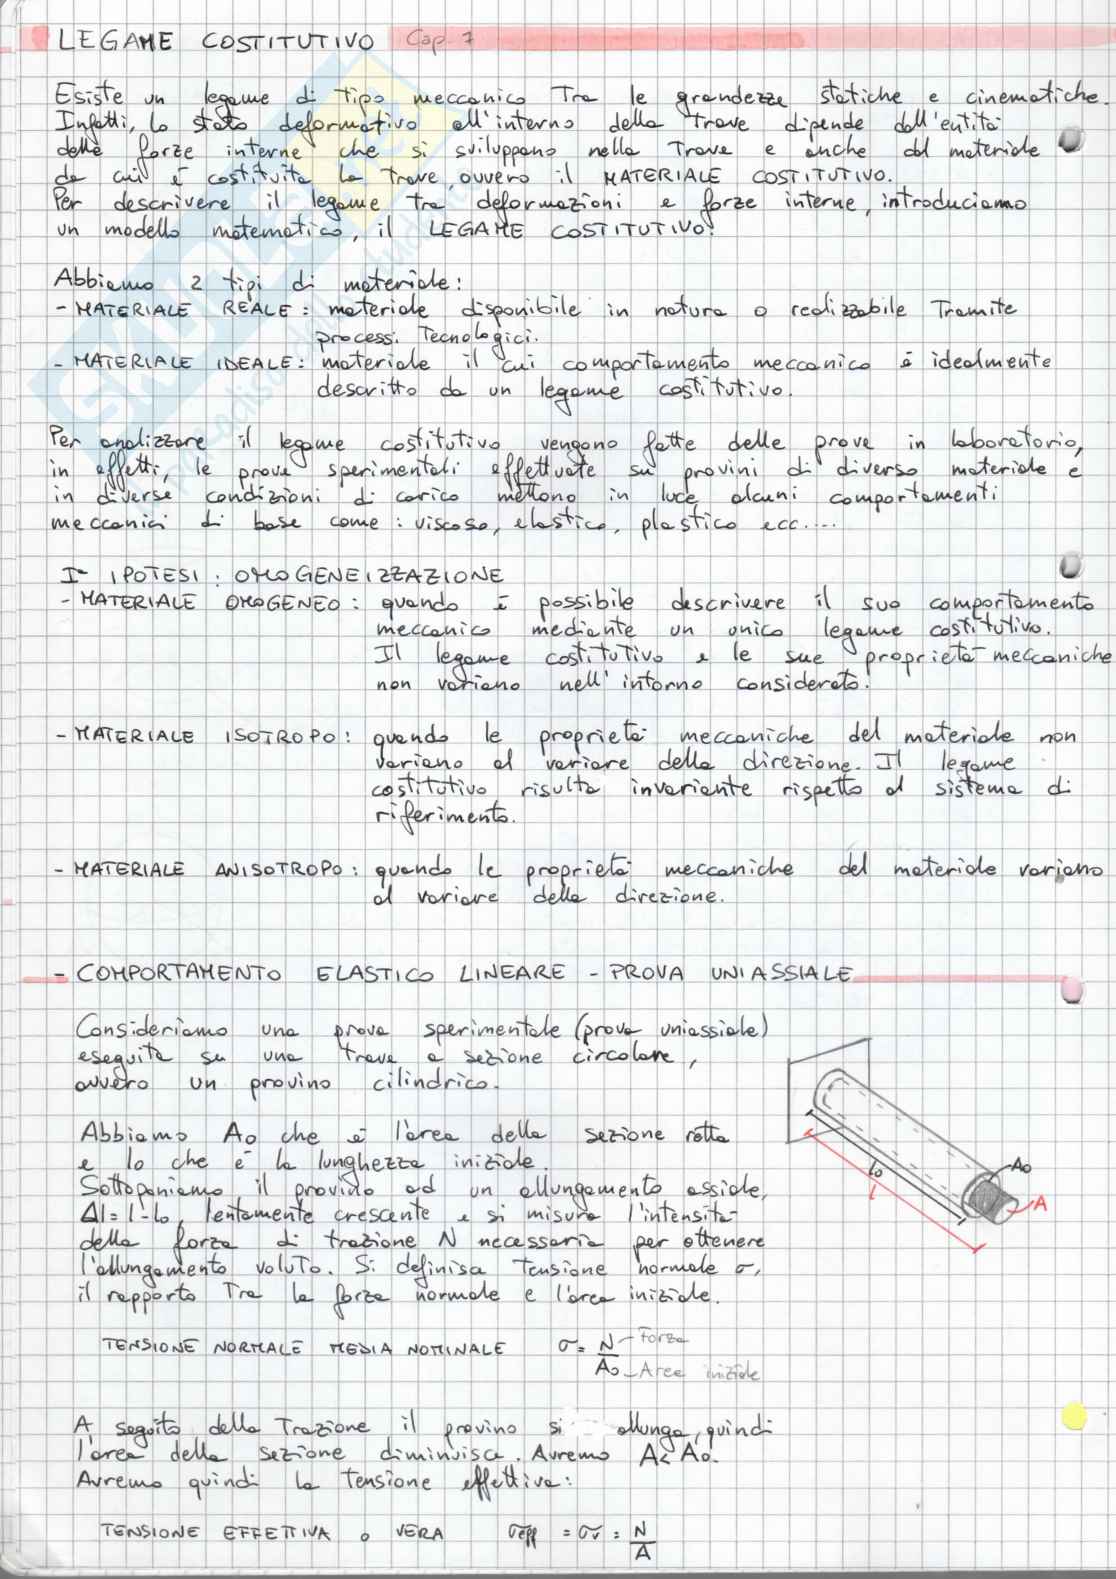 LEGAME COSTITUTIVO Cap. 7
Esiste un legame di tipo meccanico tra le grandezze statiche e cinematiche.
Infatti, lo stato deformativo all'interno della trave dipende dall'entità
delle forze interne che si sviluppano nella trave e anche dal materiale
da cui è costituita la trave, ovvero il MATERIALE COSTITUTIVO.
Per descrivere il legame tra deformazioni e forze interne, introduciamo
un modello matematico, il LEGAME COSTITUTIVO.
Abbiamo 2 tipi di materiale:
- MATERIALE REALE: materiale disponibile in natura o realizzabile tramite
processi tecnologici.
- MATERIALE IDEALE: materiale il cui comportamento meccanico è idealmente
descritto da un legame costitutivo.
Per analizzare il legame costitutivo vengono fatte delle prove in laboratorio,
in effetti, le prove sperimentali effettuate su provini di diverso materiale e
in diverse condizioni di carico mettono in luce alcuni comportamenti
meccanici di base come: viscoso, elastico, plastico ecc....
I- IPOTESI: OMOGENEIZZAZIONE
- MATERIALE OMOGENEO: quando è possibile descrivere il suo comportamento
meccanico mediante un unico legame costitutivo.
Il legame costitutivo e le sue proprietà meccaniche
non variano nell'intorno considerato.
- MATERIALE ISOTROPO: quando le proprietà meccaniche del materiale non
variano al variare della direzione. Il legame
costitutivo risulta invariante rispetto al sistema di
riferimento.
- MATERIALE ANISOTROPO: quando le proprietà meccaniche del materiale variano
al variare della direzione.
- COMPORTAMENTO ELASTICO LINEARE - PROVA UNIASSIALE
Consideriamo una prova sperimentale (prova uniassiale)
eseguita su una trave a sezione circolare,
ovvero un provino cilindrico.
Abbiamo A₀ che è l'area della sezione retta
e l₀ che è la lunghezza iniziale.
Sottoponiamo il provino ad un allungamento assiale,
Δl = l-l₀, lentamente crescente e si misura l'intensità
della forza di trazione N necessaria per ottenere
l'allungamento voluto. Si definisca tensione normale σ,
il rapporto tra la forza normale e l'area iniziale.
l₀
l
A₀
A
TENSIONE NORMALE MEDIA NOMINALE σ = N/A₀
Forza
Area iniziale
A seguito della trazione il provino si allunga, quindi
l'area della sezione diminuisca. Avremo A< A₀.
Avremo quindi la tensione effettiva:
TENSIONE EFFETTIVA o VERA σeff = σv = N/A